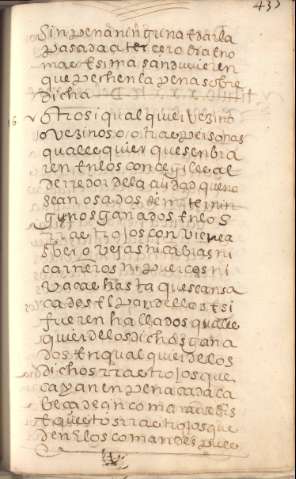 435
sin pena ninguna e da la
pasada a tercero dia e no
mas e si mas anduvieren
que pechen la pena sobre
dicha
otrosi qualquier vezino
o vezinos o otras personas
qualesquier que senbra
ren en los conçegiles al
derredor de la çiudad que no
sean osados de meter nin
gunos ganados en los
rrastrojos con viene a
sber ovejas ni cabras ni
carneros ni puercos ni
vacas hasta que sean sa
cados el pan dellos e si
fueren hallados quales
quier de los dichos gana
dos en qualquier de los
dichos rrastrojos que
cayan en pena cada ca
beça de çinco maravedis
e questos rrastrojos que
den